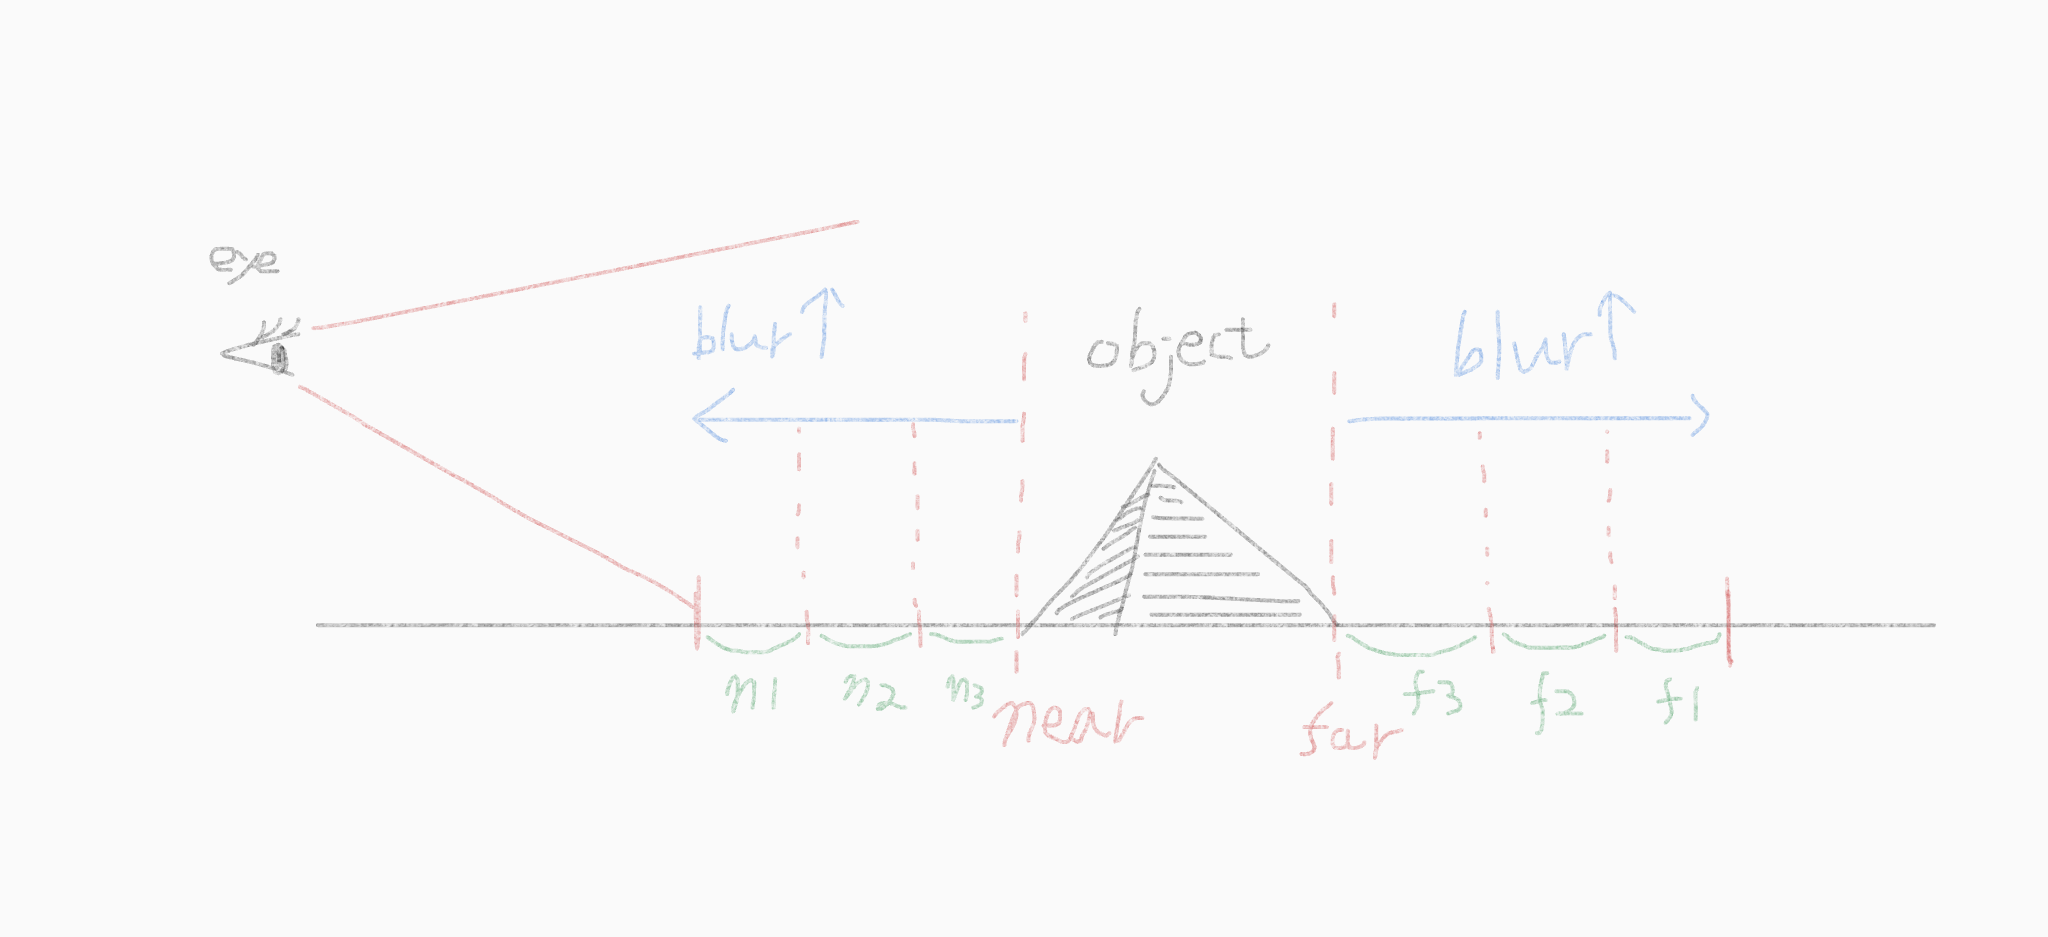 eye
blur↑
object
blur↑
n1 n2 n3 near far f3 f2 f1